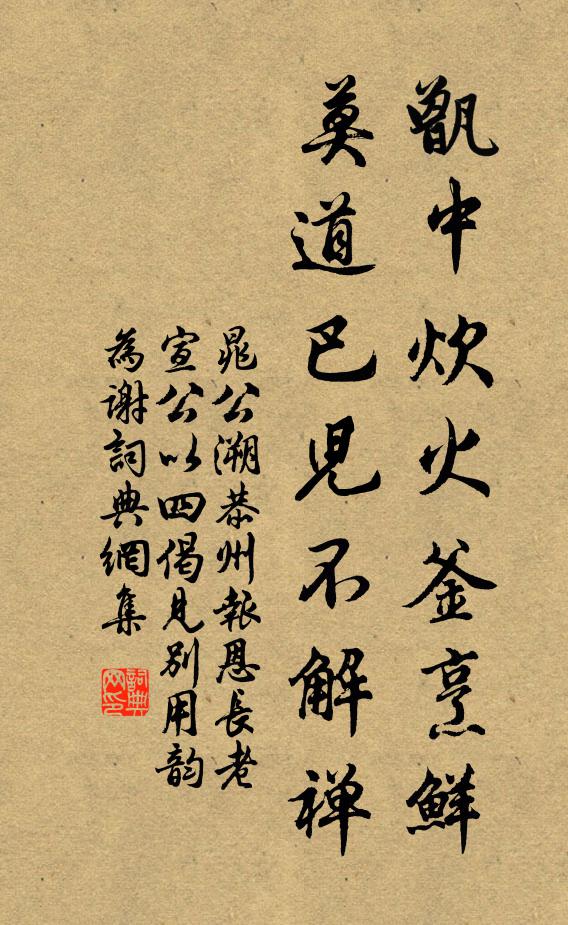 甑中炊火釜烹鮮
莫道巴兒不解禪
晁公溯恭州報恩長老
宣公以四偈見別用韵
為謝詞典網集
詞典网印